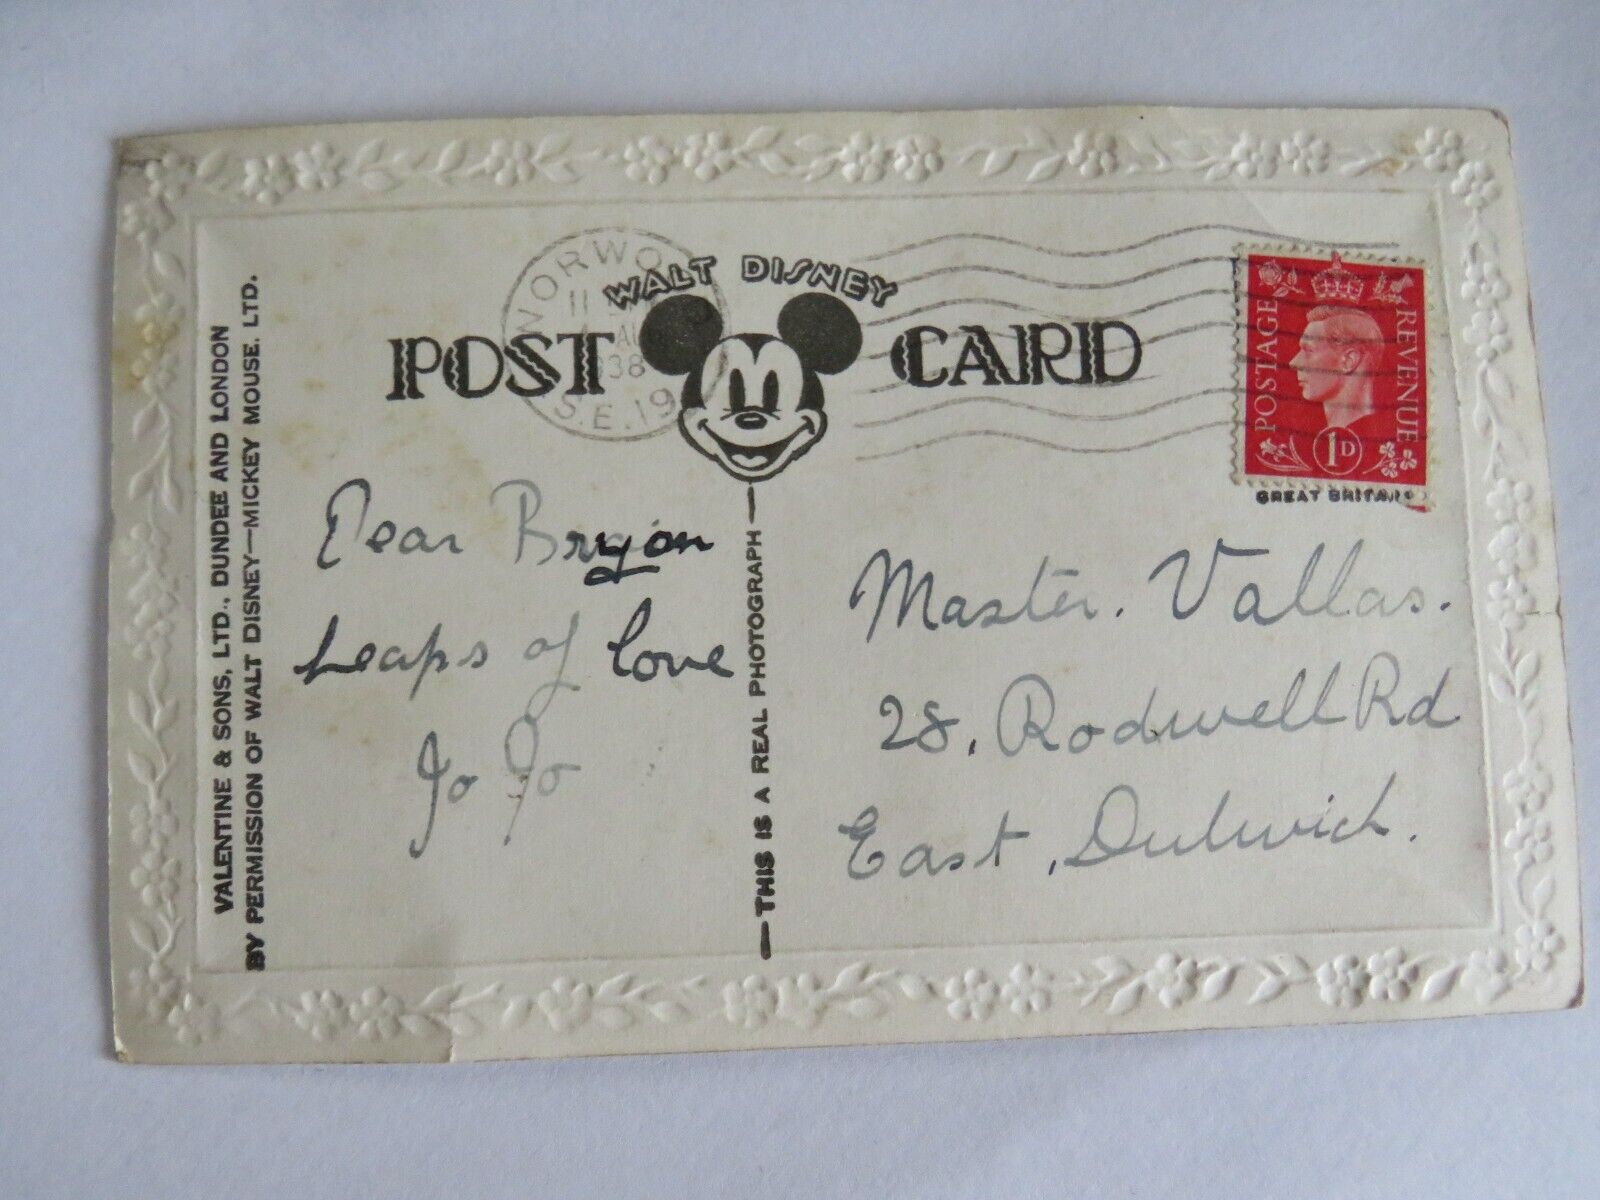 VALENTINE & SONS, LTD., DUNDEE AND LONDON
BY PERMISSION OF WALT DISNEY—MICKEY MOUSE. LTD.
WALT DISNEY
POST CARD
NORWO
11
AU
38
S.E.19
POSTAGE REVENUE
1D
GREAT BRITAIN
Dear Bryan
heaps of love
Jo Jo
—THIS IS A REAL PHOTOGRAPH—
Master. Vallas.
28, Rodwell Rd
East, Dulwich.